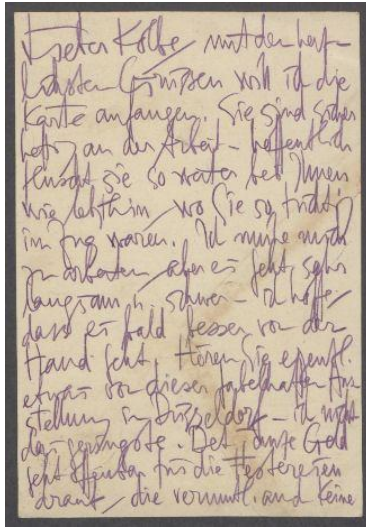 Lieber Kolbe, mit den herz-
lichsten Grüssen will ich die
Karte anfangen. Sie sind sicher
heftig an der Arbeit – hoffentlich
flutscht sie so weiter bei Ihnen
wie letzthin, wo Sie so tüchtig
im Zug waren. Ich mühe mich
zu arbeiten, aber es geht sehr
langsam u. schwer – ich hoffe,
dass es bald besser von der
Hand geht. Hören Sie eigentl.
etwas von dieser fabelhaften Aus-
stellung in Düsseldorf – ich nicht
das geringste. Das ganze Geld
geht offenbar für die Festereien
drauf, die vermutl. auch keine